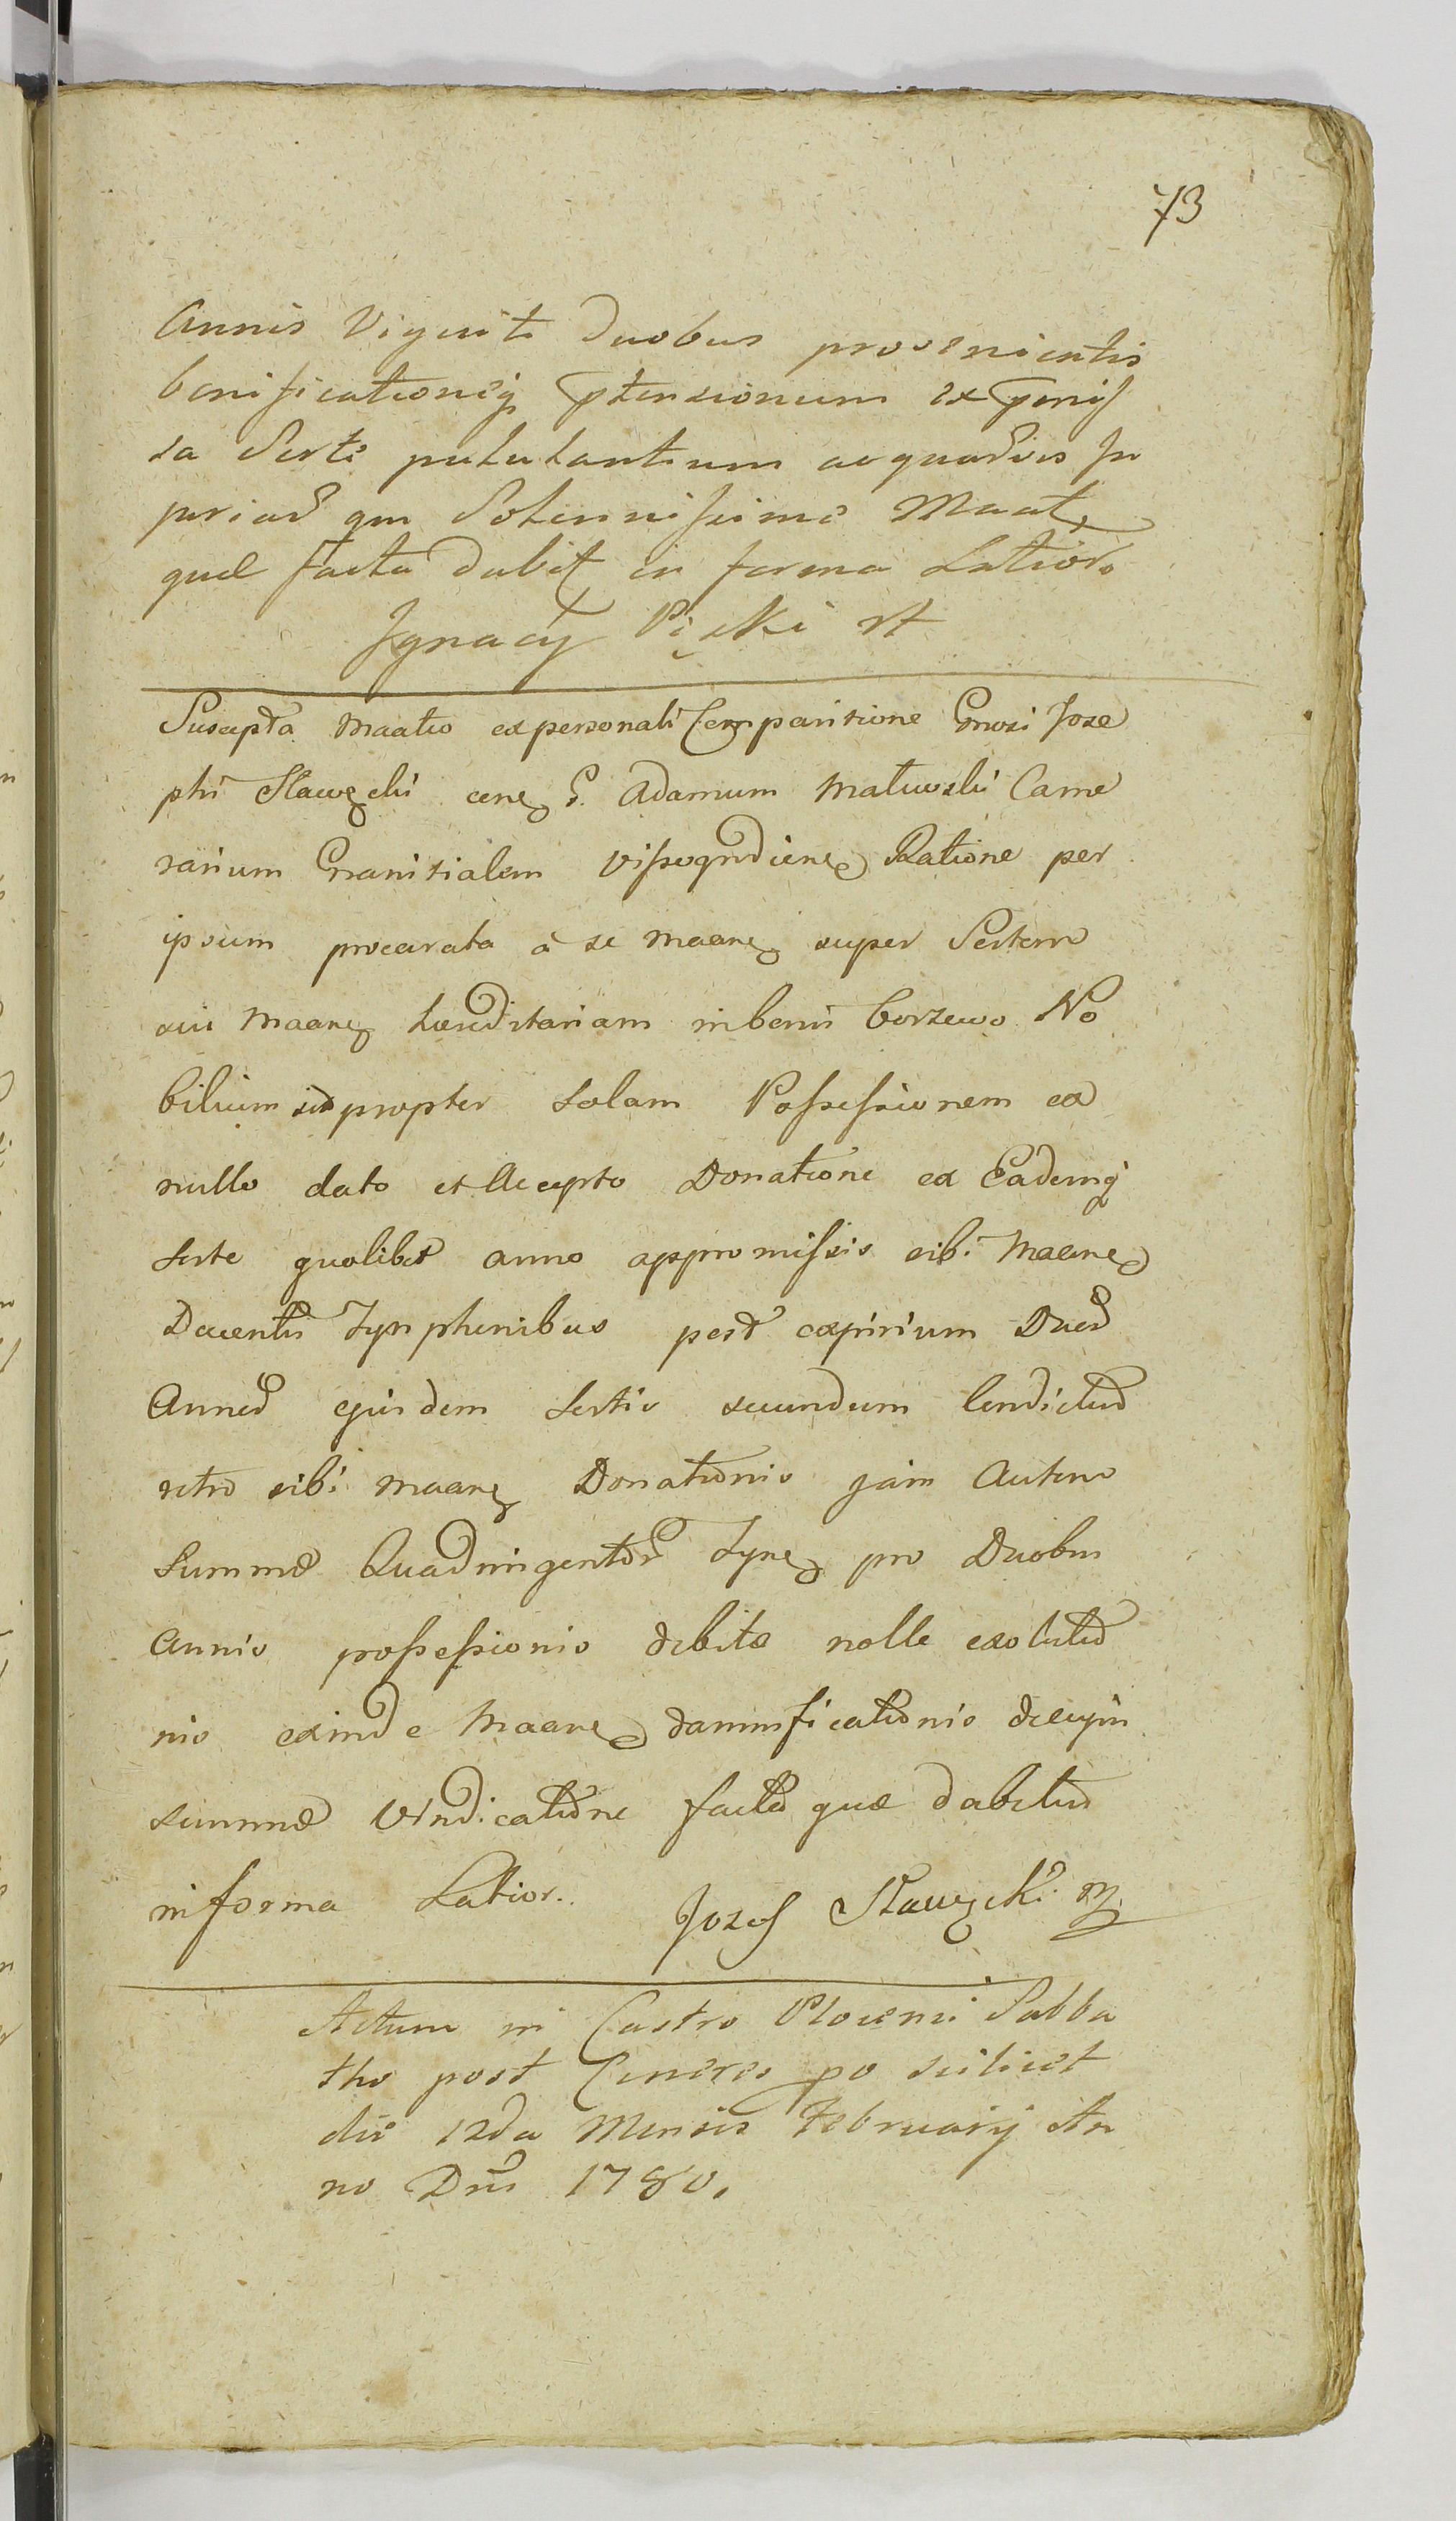 73
Annis Viginti duobus provenientis
bonificationeq ptensionum ex pmis
sa Sorte pululantium ac quarvis In
juriar qm Solennissime Maat
quae facta dabit in forma Latior.
Ignacy Pi̢cki
Suscepta Maatio ex personali Comparitione Gnosi Jose
phi Stawęcki cone G. Adamum Maluwski Came
rarium Granitialem Vissogrdiene Ratione per
ipsum procurata à se maane super Sortem
sui Maane haereditariam in bonis Borzewo No
bilium sed propter Solam Possessionem ex
nullo dato et Accepto Donatione ex Eademq
Sorte quolibet anno appromissis sibi Maane
Ducentis Tynphonibus post expirium Duor
Annor ejusdem Sortis secundum Condictum
retro sibi maane Donationis jam Autem
Summae Quadringentor Tyne pro Duobus
Annis possessionis debitae nolle exolutio
nis exinde Maane damnificationis
summae Vindicatione facta quae dabitur
in forma Latior. Jozef Stawęcki mp
Actum in Castro Plocensi Sabba
tho post Cineres po scilicet
die 12da Mensis February An
no Dni 1780.